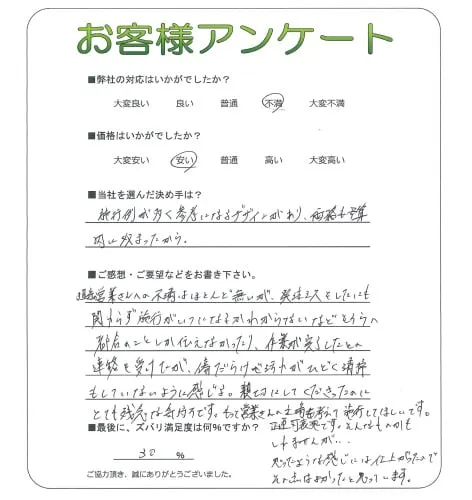 お客様アンケート
■弊社の対応はいかがでしたか？
大変良い 良い 普通 不満 大変不満
■価格はいかがでしたか？
大変安い 安い 普通 高い 大変高い
■当社を選んだ決め手は？
施行例が多く参考になるデザインがあり、価格も予算
内に収まったから。
■ご感想・ご要望などをお書き下さい。
営業さんへの不満はほとんど無いが、発注入をしたにも
関わらず施行がいつになるかわからないなどそちらの
都合のことしか伝えなかったり、作業が完了したとの
連絡を受けたが、傷だらけで汚れがひどく清掃
もしていないように感じる。親切にしてくださったのに
とても残念な気持です。もっと営業さんの立場も考えて施行してほしいです。
正直可哀想です。そんなものかも
しれませんが…
思ったような感じには仕上がったので
その点はよかったと思っています。
■最後に、ズバリ満足度は何%ですか？
30 %
ご協力頂き、誠にありがとうございました。